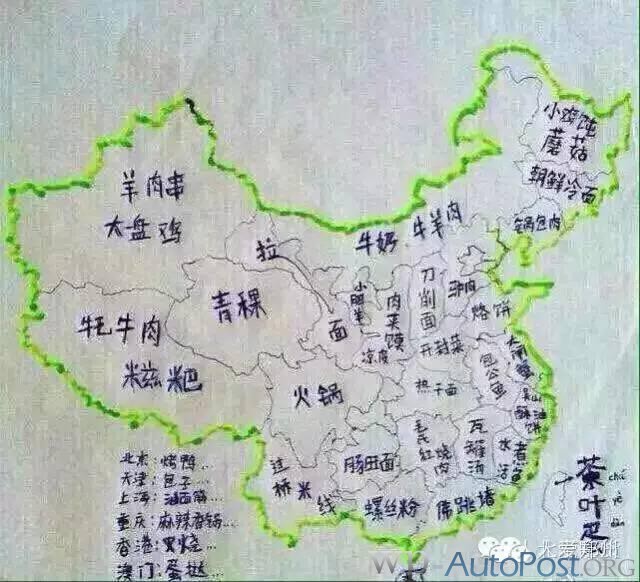 小鸡炖
蘑菇
朝鲜冷面
锅包肉
羊肉串
大盘鸡
拉
面
牛奶、牛羊肉
青稞
牦牛肉
糍粑
小肥羊
肉夹馍
凉皮
刀削面
驴肉
烙饼
开封菜
热干面
包公鱼
大闸蟹
吴山酥油饼
火锅
毛氏红烧肉
瓦罐汤
肠旺面
过桥米线
螺丝粉
佛跳墙
茶叶
chá
yè
dàn
北京:烤鸭...
天津:包子...
上海:
重庆:麻辣香锅...
香港:叉烧...
澳门:蛋挞...
大爱郑州
W-AutoPost.ORG